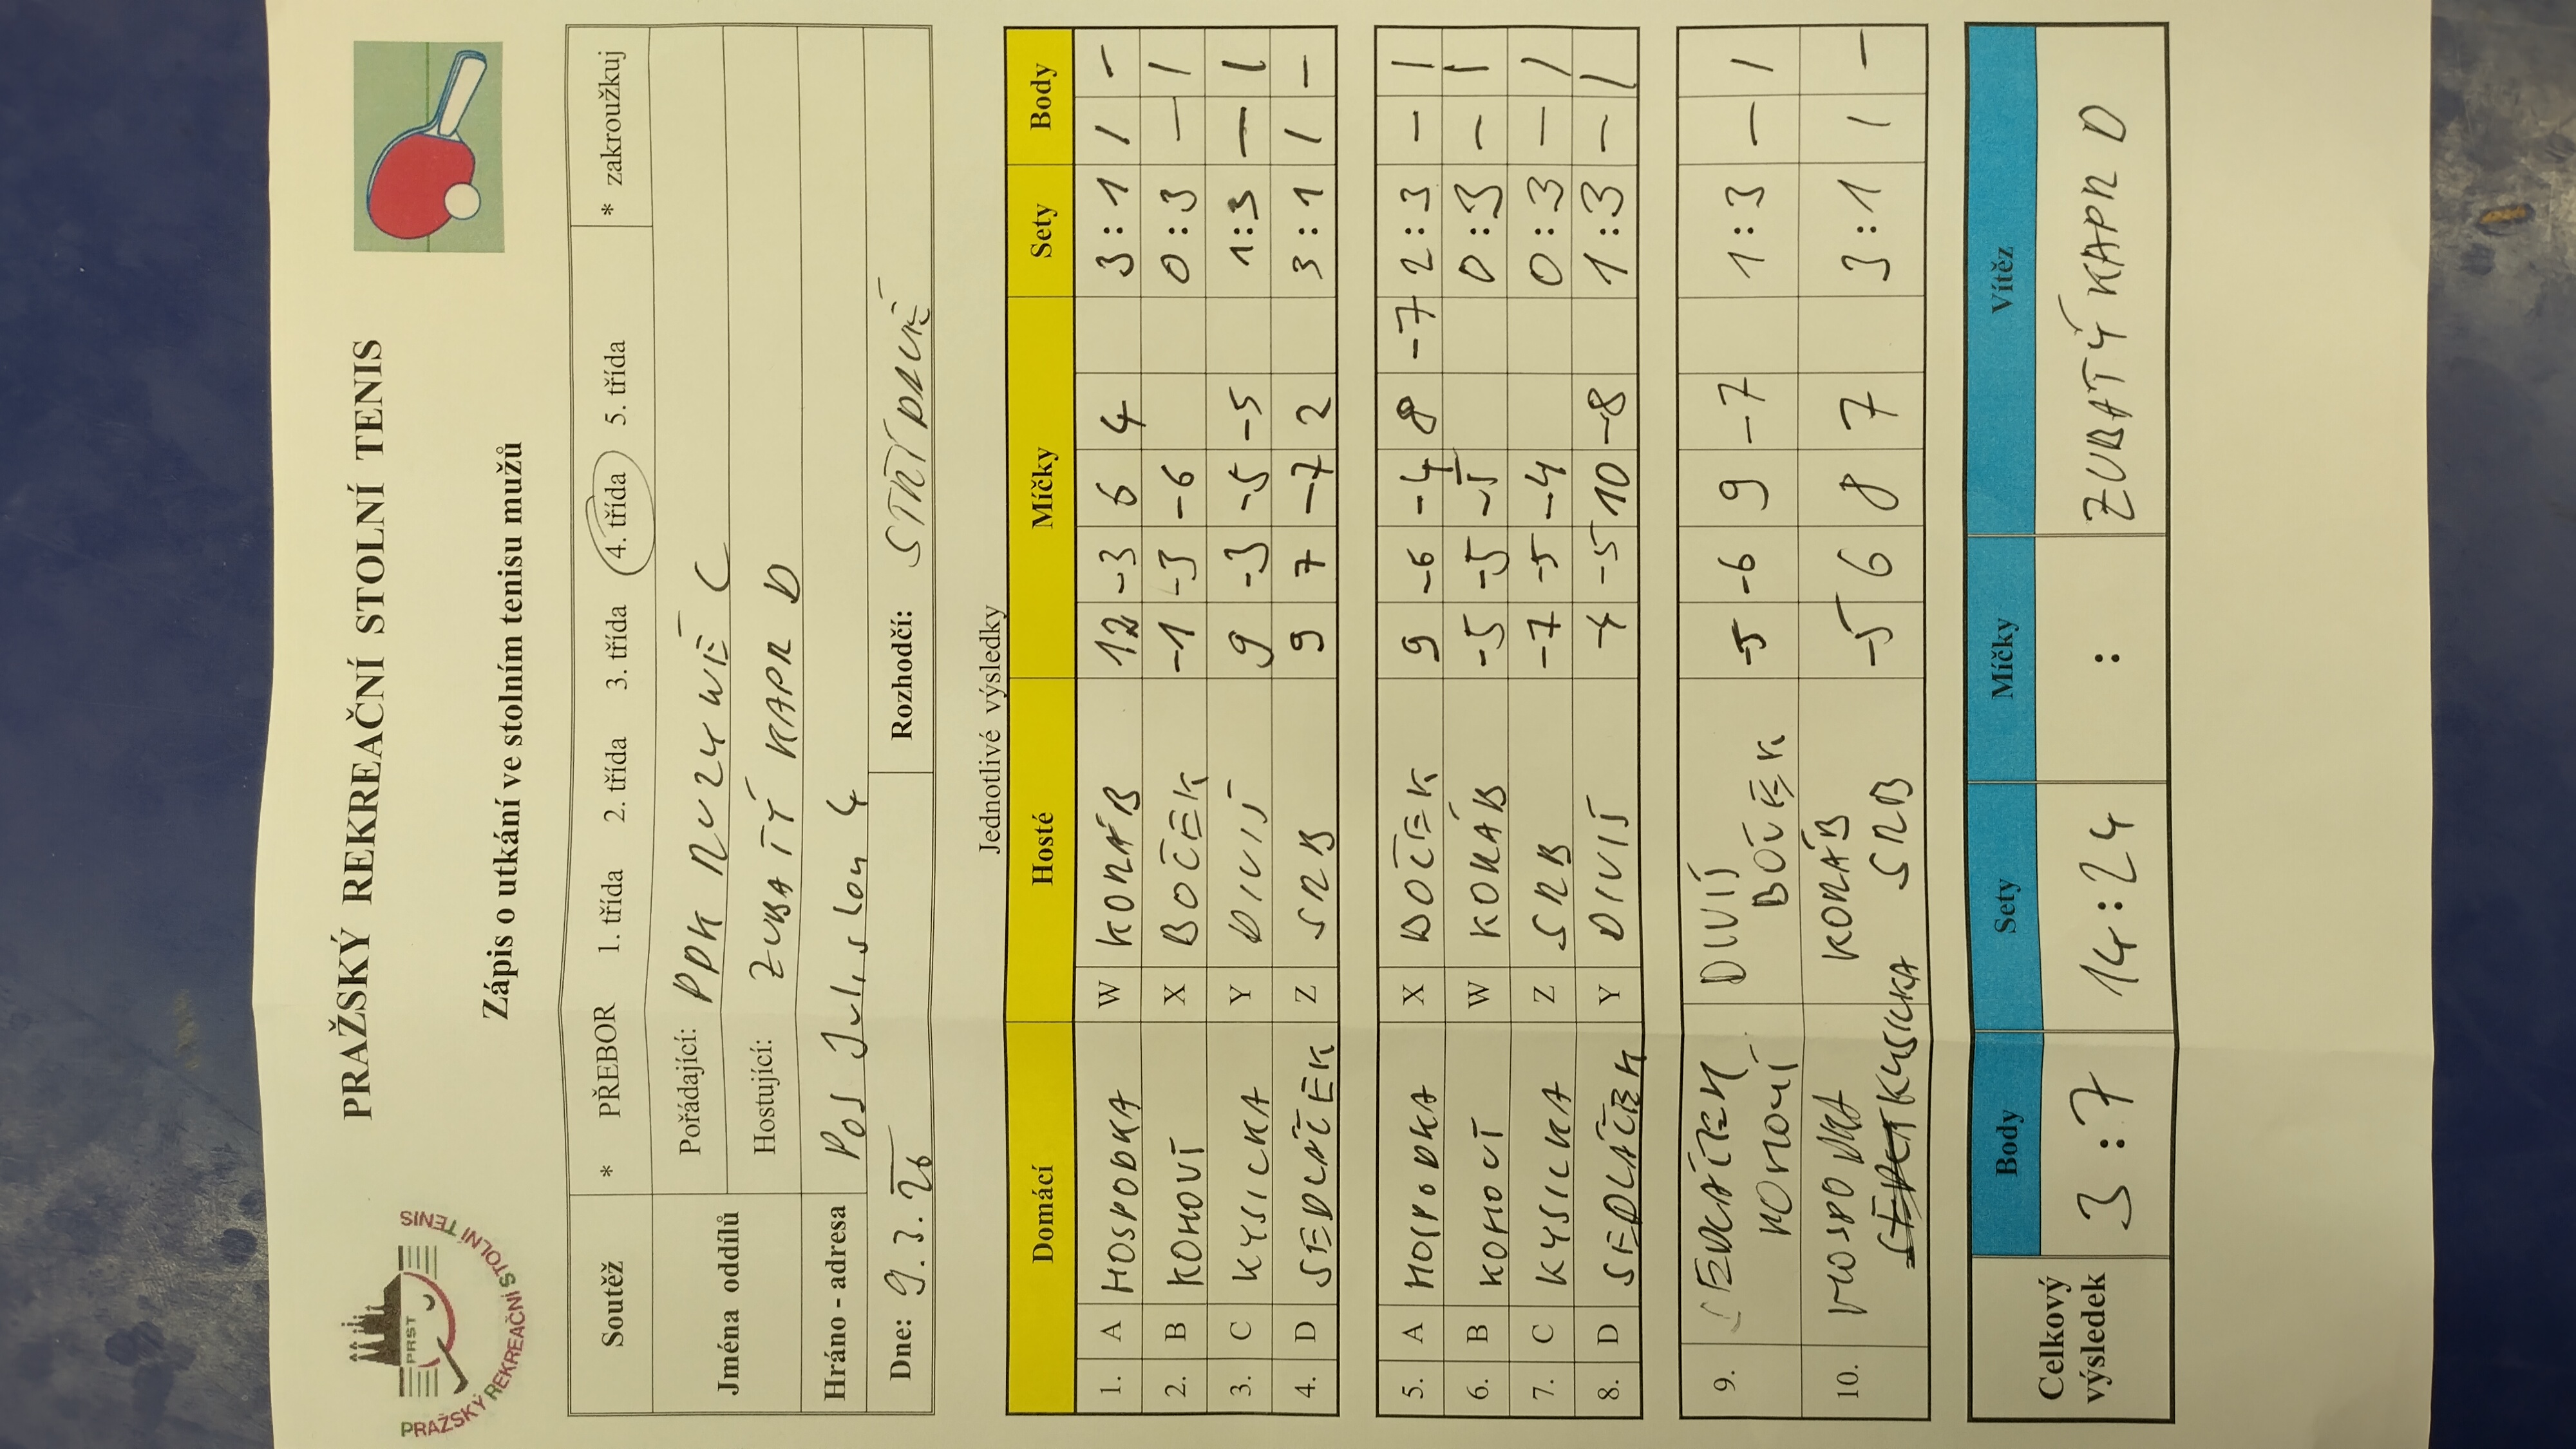 PRAŽSKÝ REKREAČNÍ STOLNÍ TENIS
PRST
PRAŽSKÝ REKREAČNÍ STOLNÍ TENIS
Zápis o utkání ve stolním tenisu mužů
Soutěž * PŘEBOR 1. třída 2. třída 3. třída 4. třída 5. třída * zakroužkuj
Jména oddílů Pořádající: PPK RUZYNĚ C
Hostující: ZUBATÝ KAPR D
Hráno - adresa Pod Juliskou 4
Dne: 9.3. Rozhodčí: STŘÍDAVĚ
Jednotlivé výsledky
Domácí Hosté Míčky Sety Body
1. A HOSPODKA W KORÁB 12 -3 6 4 3:1 1 -
2. B KOHOUT X BOČEK -1 -3 -6 0:3 - 1
3. C KYSILKA Y DIVIŠ 9 -3 -5 -5 1:3 - 1
4. D SEDLÁČEK Z SRB 9 7 -7 2 3:1 1 -
5. A HOSPODKA X BOČEK 9 -6 -4 8 -7 2:3 - 1
6. B KOHOUT W KORÁB -5 -5 -5 0:3 - 1
7. C KYSILKA Z SRB -7 -5 -4 0:3 - 1
8. D SEDLÁČEK Y DIVIŠ -4 -5 10 -8 1:3 - 1
9. SEDLÁČEK DIVIŠ -5 -6 9 -7 1:3 - 1
KOHOUT BOČEK
10. HOSPODKA KORÁB -5 6 8 7 3:1 1 -
KYSILKA SRB
Celkový výsledek Body Sety Míčky Vítěz
3:7 14:24 : ZUBATÝ KAPR D